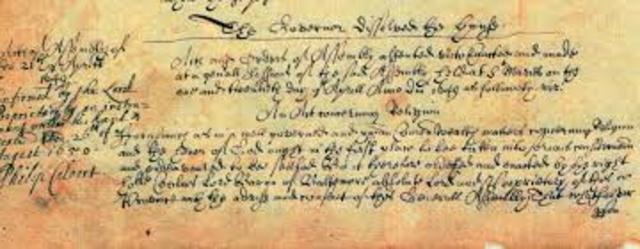 The Governor dissolved the house.
Acts and Orders of Assembly assented unto Enacted and made
at a genall Sessions of the said Assembly held at St Maries on the
one and twentieth day of Aprill Anno Dm 1649 as followeth viz.
An Act concerning Religion
fforasmuch as in a well governed and xpian Comon Wealth matters concerning Religion
and the honor of God ought in the first place to bee taken into serious consideracon
and endeavoured to bee settled. Bee it therefore ordered and enacted by the right
hoble Cecilius Lord Baron of Baltemore absolute Lord and Proprietary of this
Province with the advise and consent of this Generall Assembly. That
Acts of Assembly of
the 21th of Aprill
1649
confirmed by the Lord
Proprietary by an instru-
ment
August 1650
Philip Calvert